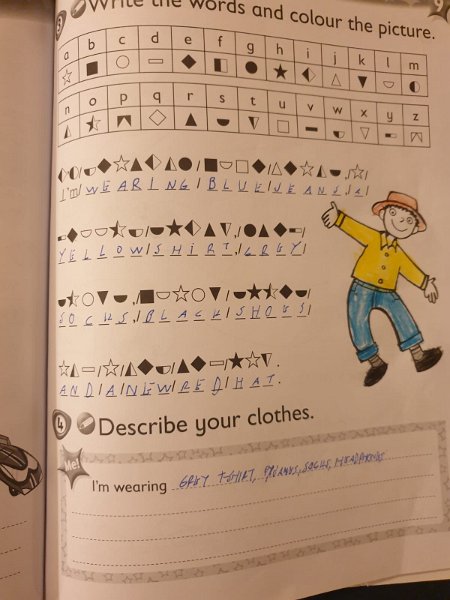 3 Write the words and colour the picture.
a b c d e f g h i j k l m
n o p q r s t u v w x y z
I'm/WEARING/BLUE/JEANS,/A/
YELLOW/SHIRT,/GREY/
SOCKS,/BLACK/SHOES/
AND/A/NEW/RED/HAT.
4 Describe your clothes.
Me!
I'm wearing GREY T-SHIRT, SOCKS, HEADPHONES